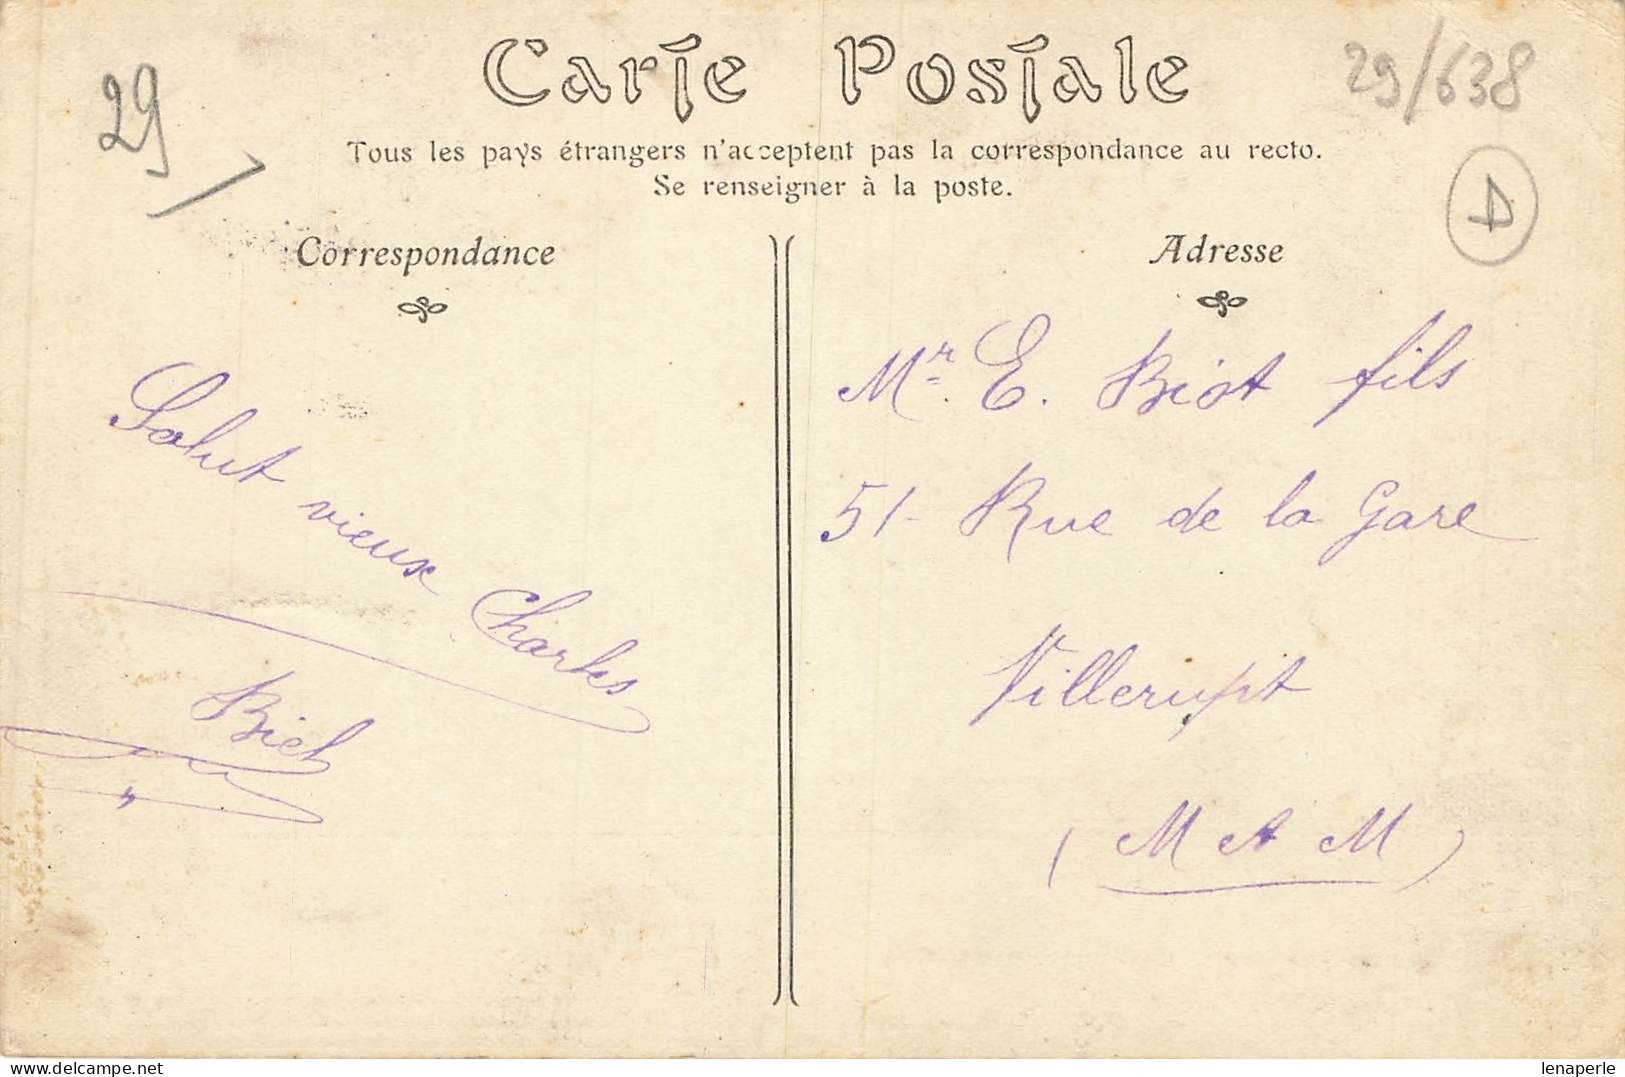 29/
Carte Postale
29/638
Tous les pays étrangers n'acceptent pas la correspondance au recto.
Se renseigner à la poste.
D
Correspondance
Adresse
Salut vieux Charles
Mr E. Biot fils
51 - Rue de la Gare
Villerupt
(M et M)
www.delcampe.net
lenaperle